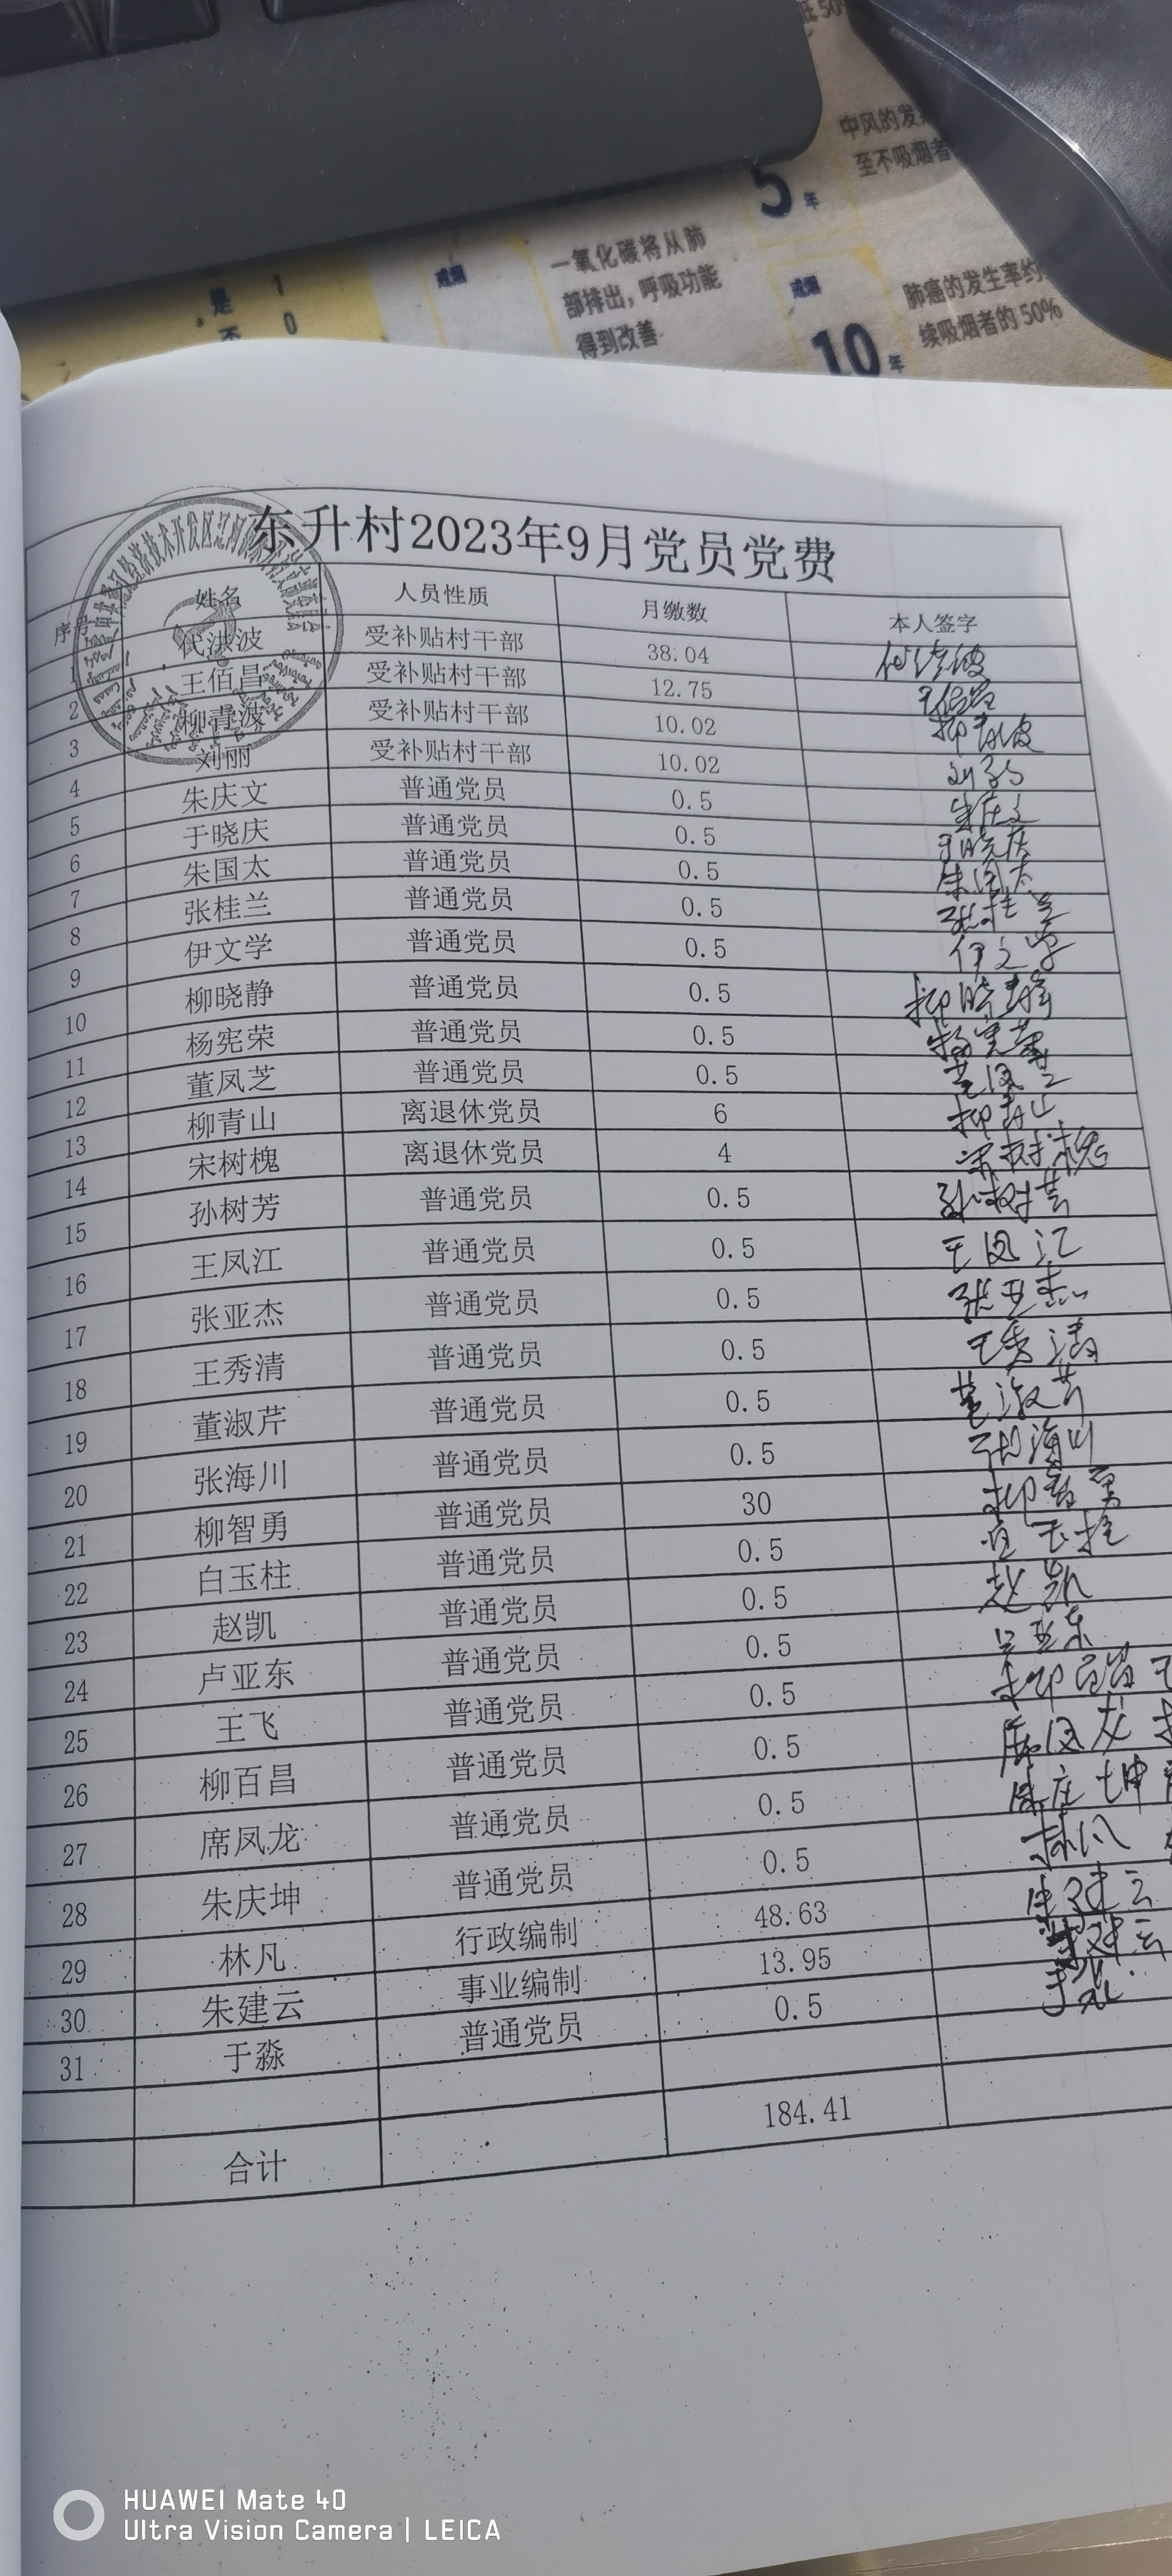 低50%
中风的发
至不吸烟者
5年
戒烟
一氧化碳将从肺
部排出，呼吸功能
得到改善
戒烟
10年
肺癌的发生率约
续吸烟者的50%
是 1
否 0
东升村2023年9月党员党费
序号 姓名 人员性质 月缴数 本人签字
1 代洪波 受补贴村干部 38.04 代洪波
2 王佰昌 受补贴村干部 12.75 王佰昌
3 柳青波 受补贴村干部 10.02 柳青波
4 刘丽 受补贴村干部 10.02 刘丽
5 朱庆文 普通党员 0.5 朱庆文
6 于晓庆 普通党员 0.5 于晓庆
7 朱国太 普通党员 0.5 朱国太
8 张桂兰 普通党员 0.5 张桂兰
9 伊文学 普通党员 0.5 伊文学
10 柳晓静 普通党员 0.5 柳晓静
11 杨宪荣 普通党员 0.5 杨宪荣
12 董凤芝 普通党员 0.5 董凤芝
13 柳青山 离退休党员 6 柳青山
14 宋树槐 离退休党员 4 宋树槐
15 孙树芳 普通党员 0.5 孙树芳
16 王凤江 普通党员 0.5 王凤江
17 张亚杰 普通党员 0.5 张亚杰
18 王秀清 普通党员 0.5 王秀清
19 董淑芹 普通党员 0.5 董淑芹
20 张海川 普通党员 0.5 张海川
21 柳智勇 普通党员 30 柳智勇
22 白玉柱 普通党员 0.5 白玉柱
23 赵凯 普通党员 0.5 赵凯
24 卢亚东 普通党员 0.5 卢亚东
25 王飞 普通党员 0.5
26 柳百昌 普通党员 0.5 柳百昌
27 席凤龙 普通党员 0.5 席凤龙
28 朱庆坤 普通党员 0.5 朱庆坤
29 林凡 行政编制 48.63 林凡
30 朱建云 事业编制 13.95 朱建云
31 于淼 普通党员 0.5 于淼
合计 184.41
HUAWEI Mate 40
Ultra Vision Camera | LEICA